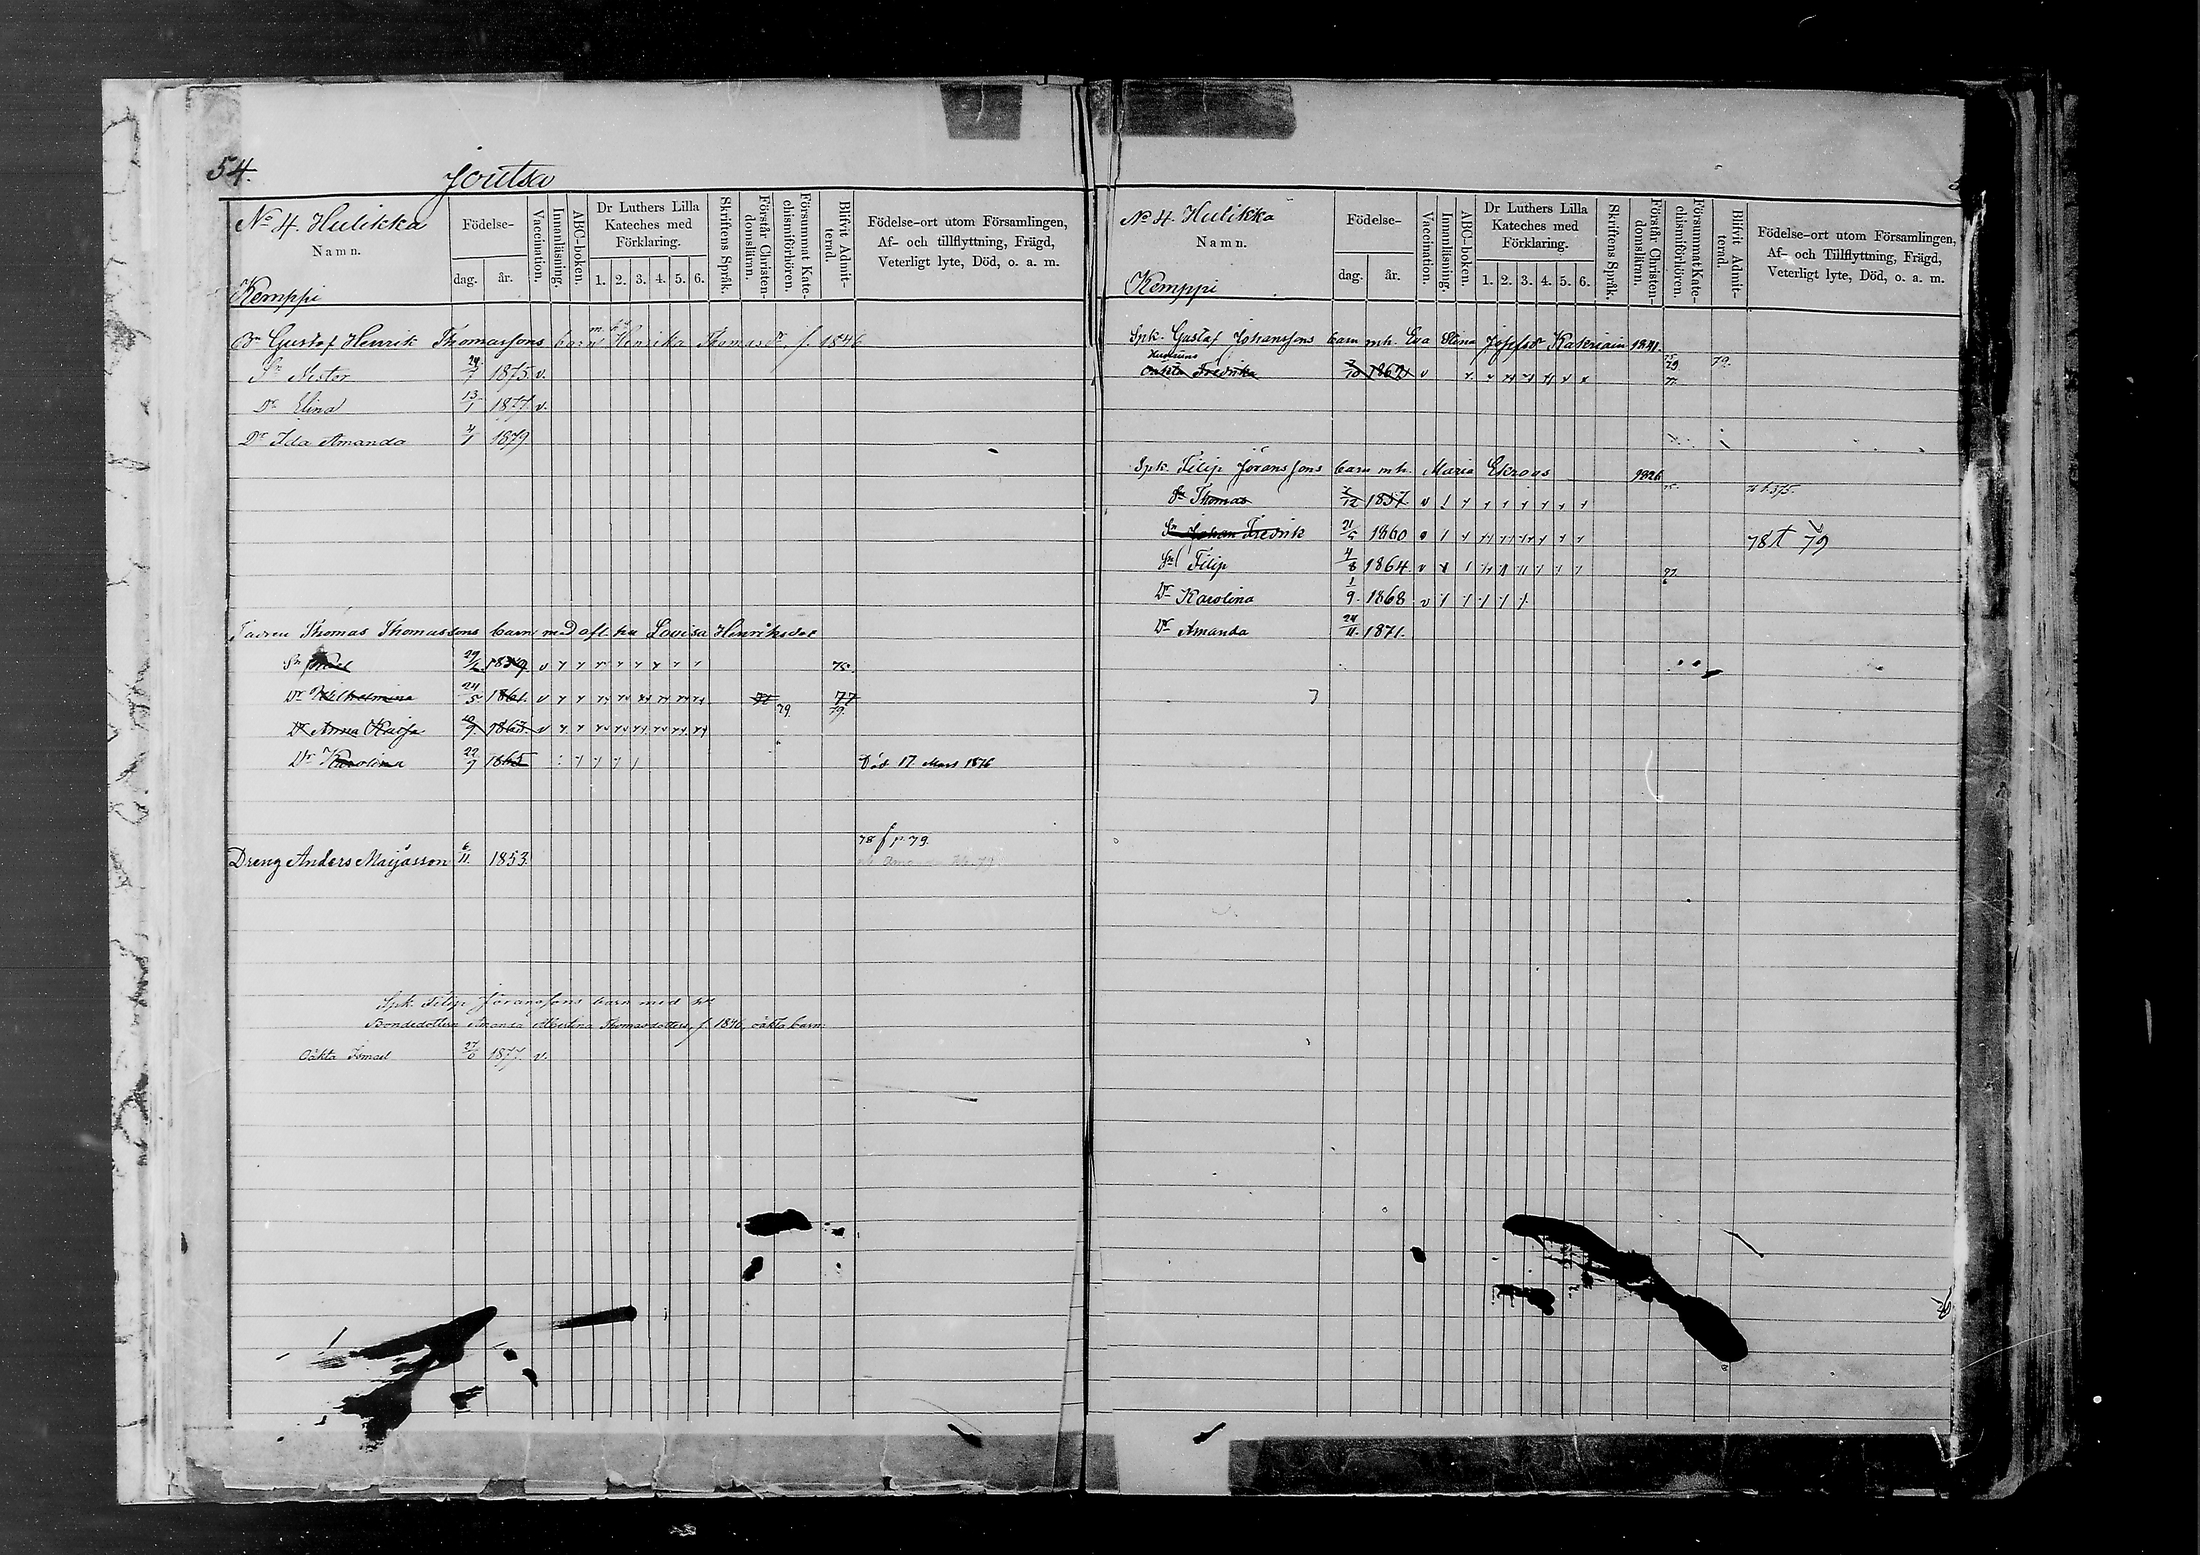 54.
Joutsa
No 4. Hulikka
Namn.
Kemppi
Födelse-
dag.
år.
Vaccination.
Innanläsning.
ABC-boken.
Dr Luthers Lilla
Kateches med
Förklaring.
1. 2. 3. 4. 5. 6.
Skriftens Språk.
Förstår Christen-
domsläran.
Försummat Kate-
chismiförhören.
Blifvit Admit-
terad.
Födelse-ort utom Församlingen,
Af- och tillflyttning, Frägd,
Veterligt lyte, Död, o. a. m.
Gustaf Henrik Thomassons barn Henrika Thomasdr, f. 1846
Sn Nestor 1875 v.
Dr Elina 13/1 1877 v.
Dr Ida Amanda 4/1 1879
Thomas Thomassons barn med afl. hu Lovisa Henriksdr
Sn 29/ 1859 v 75.
Dr Wilhelmina 24/5 1861. v 77
79. 79.
Dr Anna Kaisa /9 1863. v
Dr Karolina 22/9 1865 Död 17 Mars 1876
78 f p. 79.
Dreng Anders Maijasson 6/11. 1853.
Spk. Filip Göransons barn med
Bondedottern Amanda Albertina Thomasdotters, f. 1846, oäkta barn:
Oäkta Ismael 27/6 1877. v.
No 4. Hulikka
Namn.
Kemppi
Födelse-
dag.
år.
Vaccination.
Innanläsning.
ABC-boken.
Dr Luthers Lilla
Kateches med
Förklaring.
1. 2. 3. 4. 5. 6.
Skriftens Språk.
Förstår Christen-
domsläran.
Försummat Kate-
chismiförhören.
Blifvit Admit-
terad.
Födelse-ort utom Församlingen,
Af- och Tillflyttning, Frägd,
Veterligt lyte, Död, o. a. m.
Spk. Gustaf Johanssons barn mh. Eva Stina 1841.
Hustruns
oäkta Fredrika /10 v 79.
Spk. Filip Göranssons barn mh. Maria Ekroos 1826
Sn Thomas /12 1857. v
Sn Johan Fredrik 21/5 1860 78 t 79
Sn Filip 4/8 1864. v 77.
Dr Karolina 1/9. 1868 v
Dr Amanda 24/11. 1871.